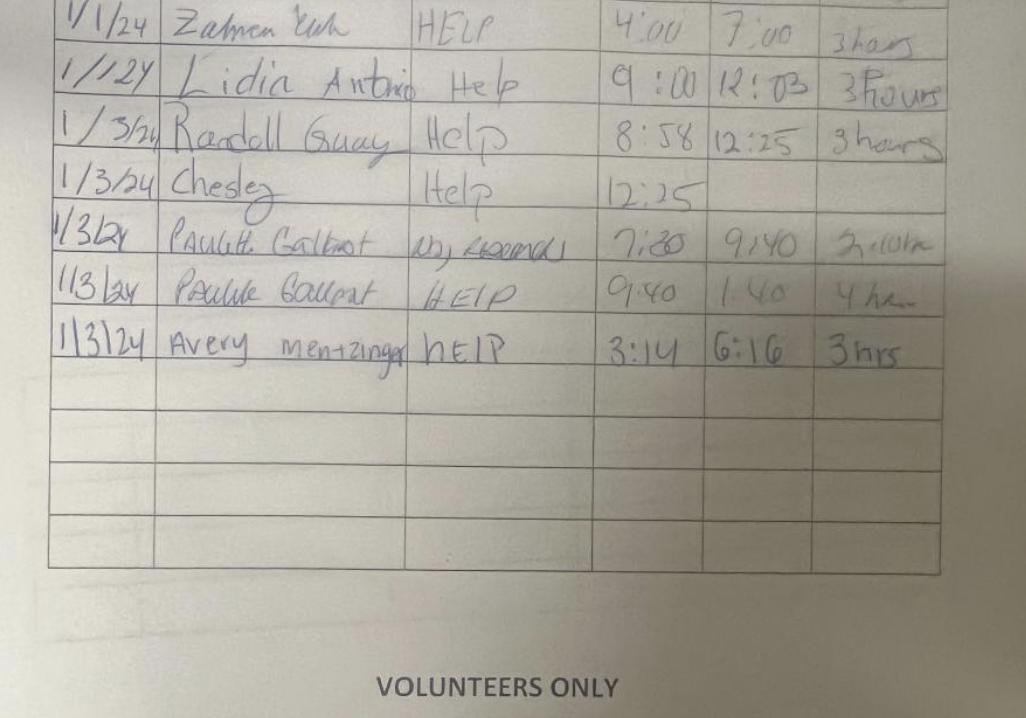 1/1/24 HELP 4:00 7:00 3 hours
1/1/24 Lidia Antonio Help 9:00 12:03 3 hours
1/3/24 Randall Guay Help 8:58 12:25 3 hours
1/3/24 Chesley Help 12:25
1/3/24 7:30 9:40
1/3/24 HELP 9:40 1:40 4 hr
1/3/24 Avery mentzinger hELP 3:14 6:16 3 hrs
VOLUNTEERS ONLY